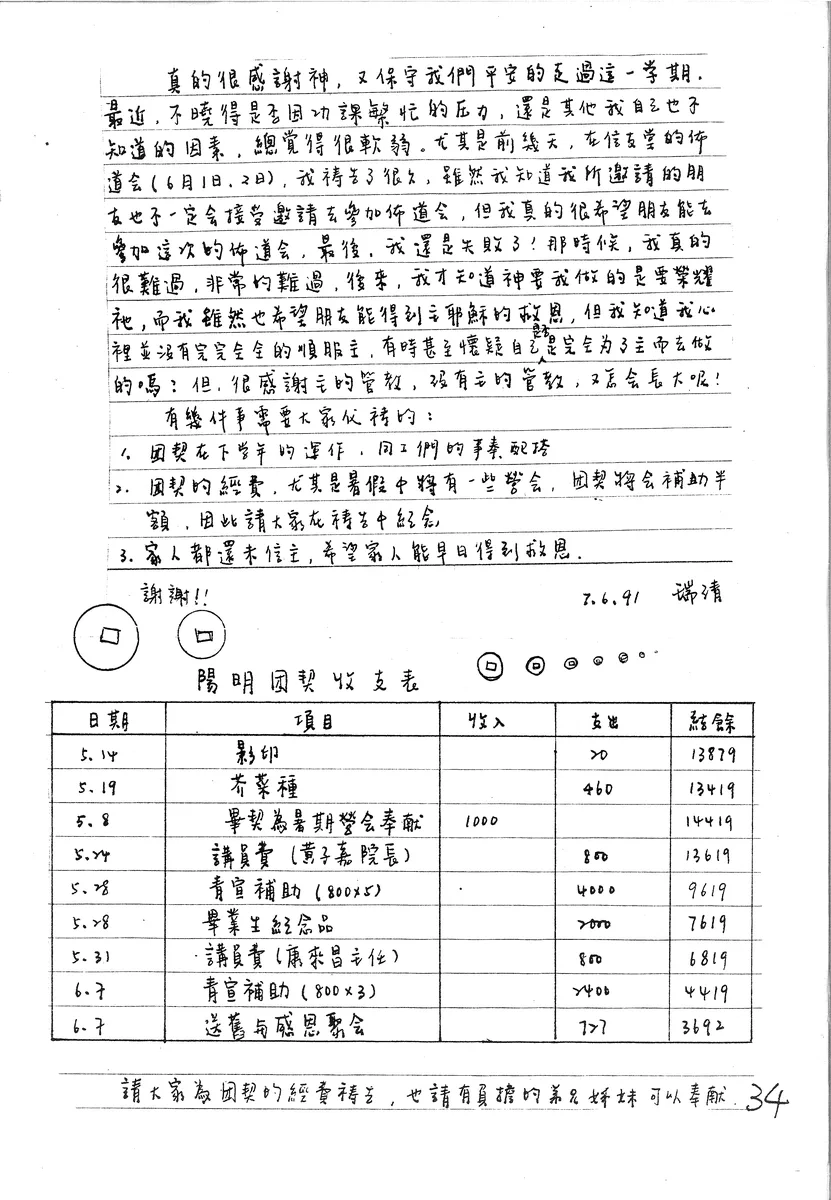 真的很感謝神，又保守我們平安的走過這一学期．
最近，不曉得是否因功課繁忙的压力，還是其他我自己也不
知道的因素，總覺得很軟弱。尤其是前幾天，在信友堂的佈
道会(6月1日、2日)，我祷告了很久，雖然我知道我所邀請的朋
友也不一定会接受邀請去參加佈道会，但我真的很希望朋友能去
參加這次的佈道会，最後，我還是失敗了！那時候，我真的
很難過，非常的難過，後來，我才知道神要我做的是要榮耀
祂，而我雖然也希望朋友能得到主耶穌的救恩，但我知道我心
裡並沒有完完全全的順服主，有時甚至懷疑自己是否是完全为了主而去做
的嗎？但，很感謝主的管教，沒有主的管教，又怎会長大呢！
有幾件事需要大家代祷的：
1. 团契在下学年的運作，同工們的事奉配搭
2. 团契的經費，尤其是暑假中將有一些營会，团契將会補助半
額，因此請大家在祷告中紀念
3. 家人都還未信主，希望家人能早日得到救恩．
謝謝!! 7.6.91 瑞靖
陽明团契收支表
日期 項目 收入 支出 結餘
5.14 影印 20 13879
5.19 芥菜種 460 13419
5.8 畢契為暑期營会奉献 1000 14419
5.24 講員費(黄子嘉院長) 800 13619
5.28 青宣補助(800×5) 4000 9619
5.28 畢業生紀念品 2000 7619
5.31 講員費(康來昌主任) 800 6819
6.7 青宣補助(800×3) 2400 4419
6.7 送舊与感恩聚会 727 3692
請大家為团契的經費祷告，也請有負擔的弟兄姊妹可以奉献．
34